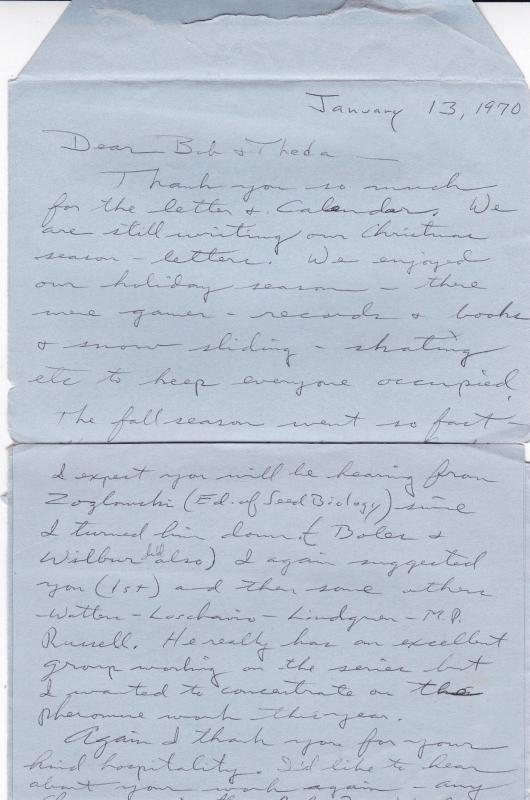 January 13, 1970
Dear Bob & Theda —
Thank you so much
for the letter & Calendar. We
are still writing our Christmas
season - letters. We enjoyed
our holiday season - there
were games - records & books
& snow sliding - skating
etc to keep everyone occupied.
The fall season went so fast -
I expect you will be hearing from
Kozlowski (Ed. of Seed Biology) since
I turned him down. (Boles &
Wilbur did also) I again suggested
you (1st) and then some others
-Watters - Loschiavo - Lindgren - M.P.
Russell. He really has an excellent
group working on the series but
I wanted to concentrate on the
pheromone work this year.
Again I thank you for your
kind hospitality. I'd like to hear
about your work again - any